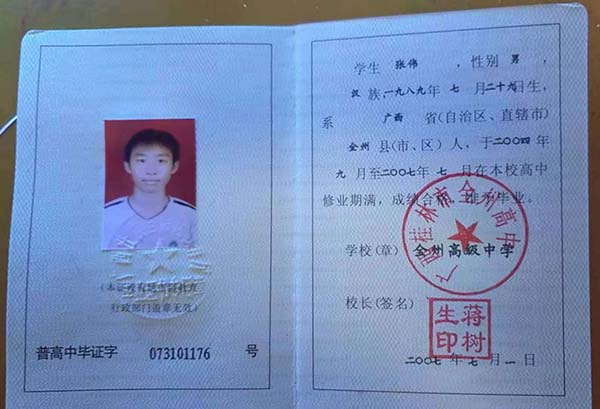 (本证没有县市级教育
行政部门盖章无效)
普高中毕证字 073101176 号
学生 张伟 ,性别 男,
汉族,一九八九年七月二十九日生,
系 广西 省(自治区、直辖市)
全州 县(市、区)人,于二〇〇四年
九月至二〇〇七年七月在本校高中
修业期满,成绩合格,准予毕业。
学校(章) 全州高级中学
广西桂林市全州高中
校长(签名)
蒋树生印
二〇〇七年七月一日